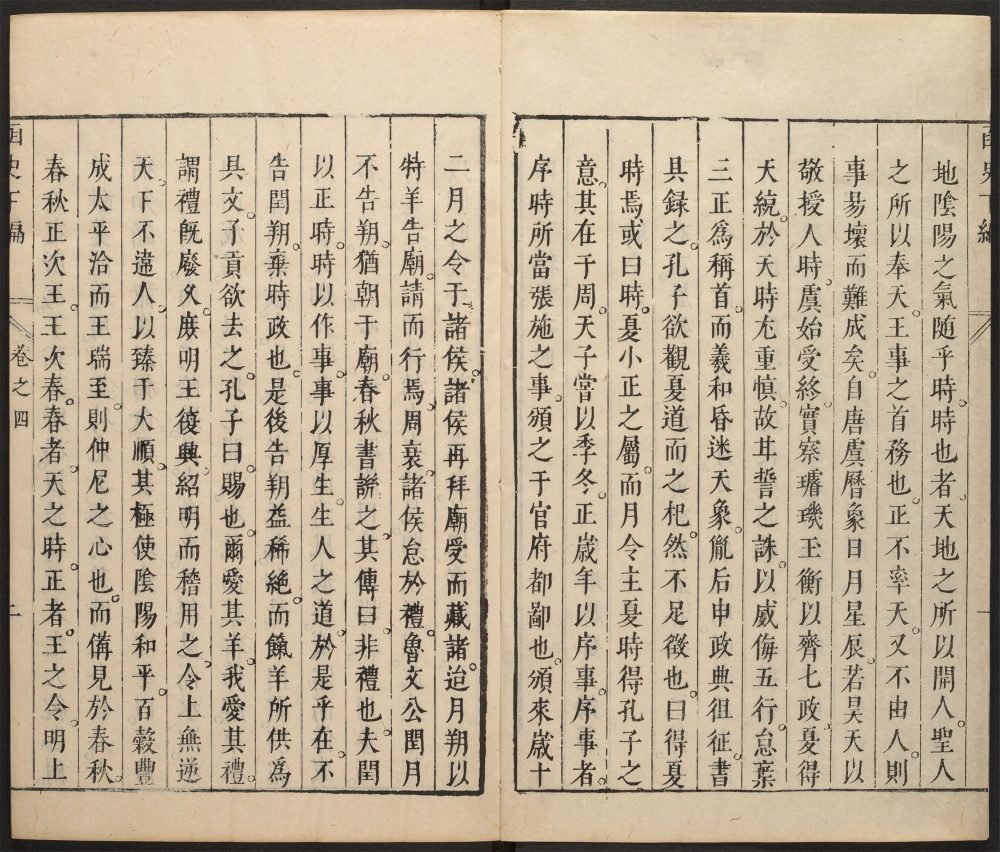 地陰陽之氣随乎時時也者天地之所以開人聖人
之所以奉天王事之首務也正不率天又不由人則
事易壞而難成矣自唐虞曆象日月星辰若昊天以
敬授人時虞始受終實察璿璣玉衡以齊七政夏得
天統於天時尤重慎故甘誓之誅以威侮五行怠棄
三正爲稱首而羲和昏迷天象胤后申政典徂征書
具録之孔子欲觀夏道而之杞然不足徵也曰得夏
時焉或曰時夏小正之屬而月令主夏時得孔子之
意其在于周天子嘗以季冬正歲年以序事序事者
序時所當張施之事頒之于官府都鄙也頒來歲十
二月之令于諸侯諸侯再拜廟受而藏諸迨月朔以
特羊告廟請而行焉周衰諸侯怠於禮魯文公閏月
不告朔猶朝于廟春秋書謗之其傳曰非禮也夫閏
以正時時以作事事以厚生生人之道於是乎在不
告閏朔棄時政也是後告朔益稀絶而餼羊所供爲
具文子貢欲去之孔子曰賜也爾愛其羊我愛其禮
謂禮旣廢久庶明王復興紹明而稽用之令上無逆
天下不違人以臻于大順其極使陰陽和平百穀豐
成太平洽而王瑞至則仲尼之心也而備見於春秋
春秋正次王王次春春者天之時正者王之令明上
卷之四
二